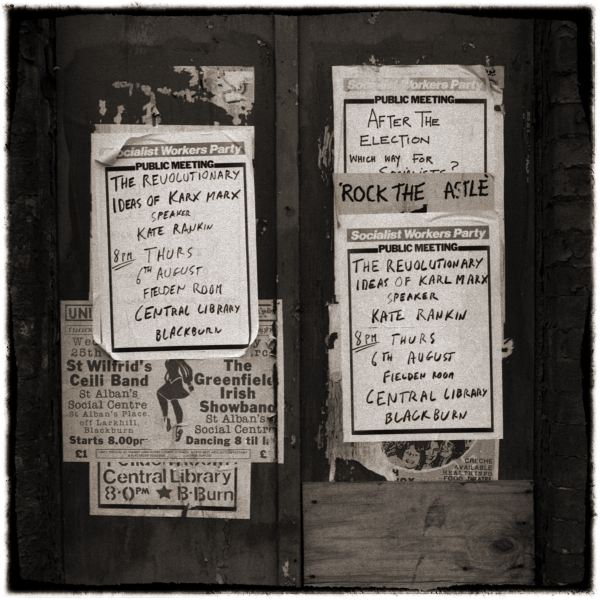 Socialist Workers Party
PUBLIC MEETING
THE REVOLUTIONARY
IDEAS OF KARX MARX
SPEAKER
KATE RANKIN
8PM THURS
6TH AUGUST
FIELDEN ROOM
CENTRAL LIBRARY
BLACKBURN
UNI
25th
St Wilfrid's
Ceili Band
St Alban's
Social Centre
St Alban's Place,
off Larkhill,
Blackburn
Starts 8.00pm
£1
The
Greenfield
Irish
Showband
St Alban's
Social
Dancing 8 til
£1
Central Library
8.0PM ★ B·Burn
Socialist Workers Party
PUBLIC MEETING
AFTER THE
ELECTION
WHICH WAY FOR
SOCIALISTS?
ROCK THE ASTLE
Socialist Workers Party
PUBLIC MEETING
THE REVOLUTIONARY
IDEAS OF KARL MARX
SPEAKER
KATE RANKIN
8PM THURS
6TH AUGUST
FIELDEN ROOM
CENTRAL LIBRARY
BLACKBURN
CRECHE
AVAILABLE